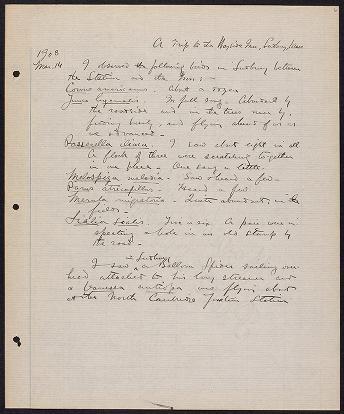 A Trip to the Wayside Inn, Sudbury, Mass
1908
Mar. 14 I observed the following birds in Sudbury between
the Station and the Inn:-
Corvus americanus. About a dozen
Junco hyemalis. In full song. Abundant by
the roadside and in the trees near by,
feeding busily and flying ahead of us as
we advanced.
Passerella iliaca. I saw about eight in all
A flock of three were scratching together
in one place. One sang a little.
Melospiza melodia. Saw & heard a few.
Parus atricapillus. Heard a few.
Merula migratoria. Quite abundant in the
fields.
Sialia sialis. Five or six. A pair were in-
specting a hole in an old stump by
the road.
in Sudbury
I saw a Balloon Spider sailing over
head attached to his long streamer and
a Vanessa antiopa was flying about
at the North Cambridge Junction Station